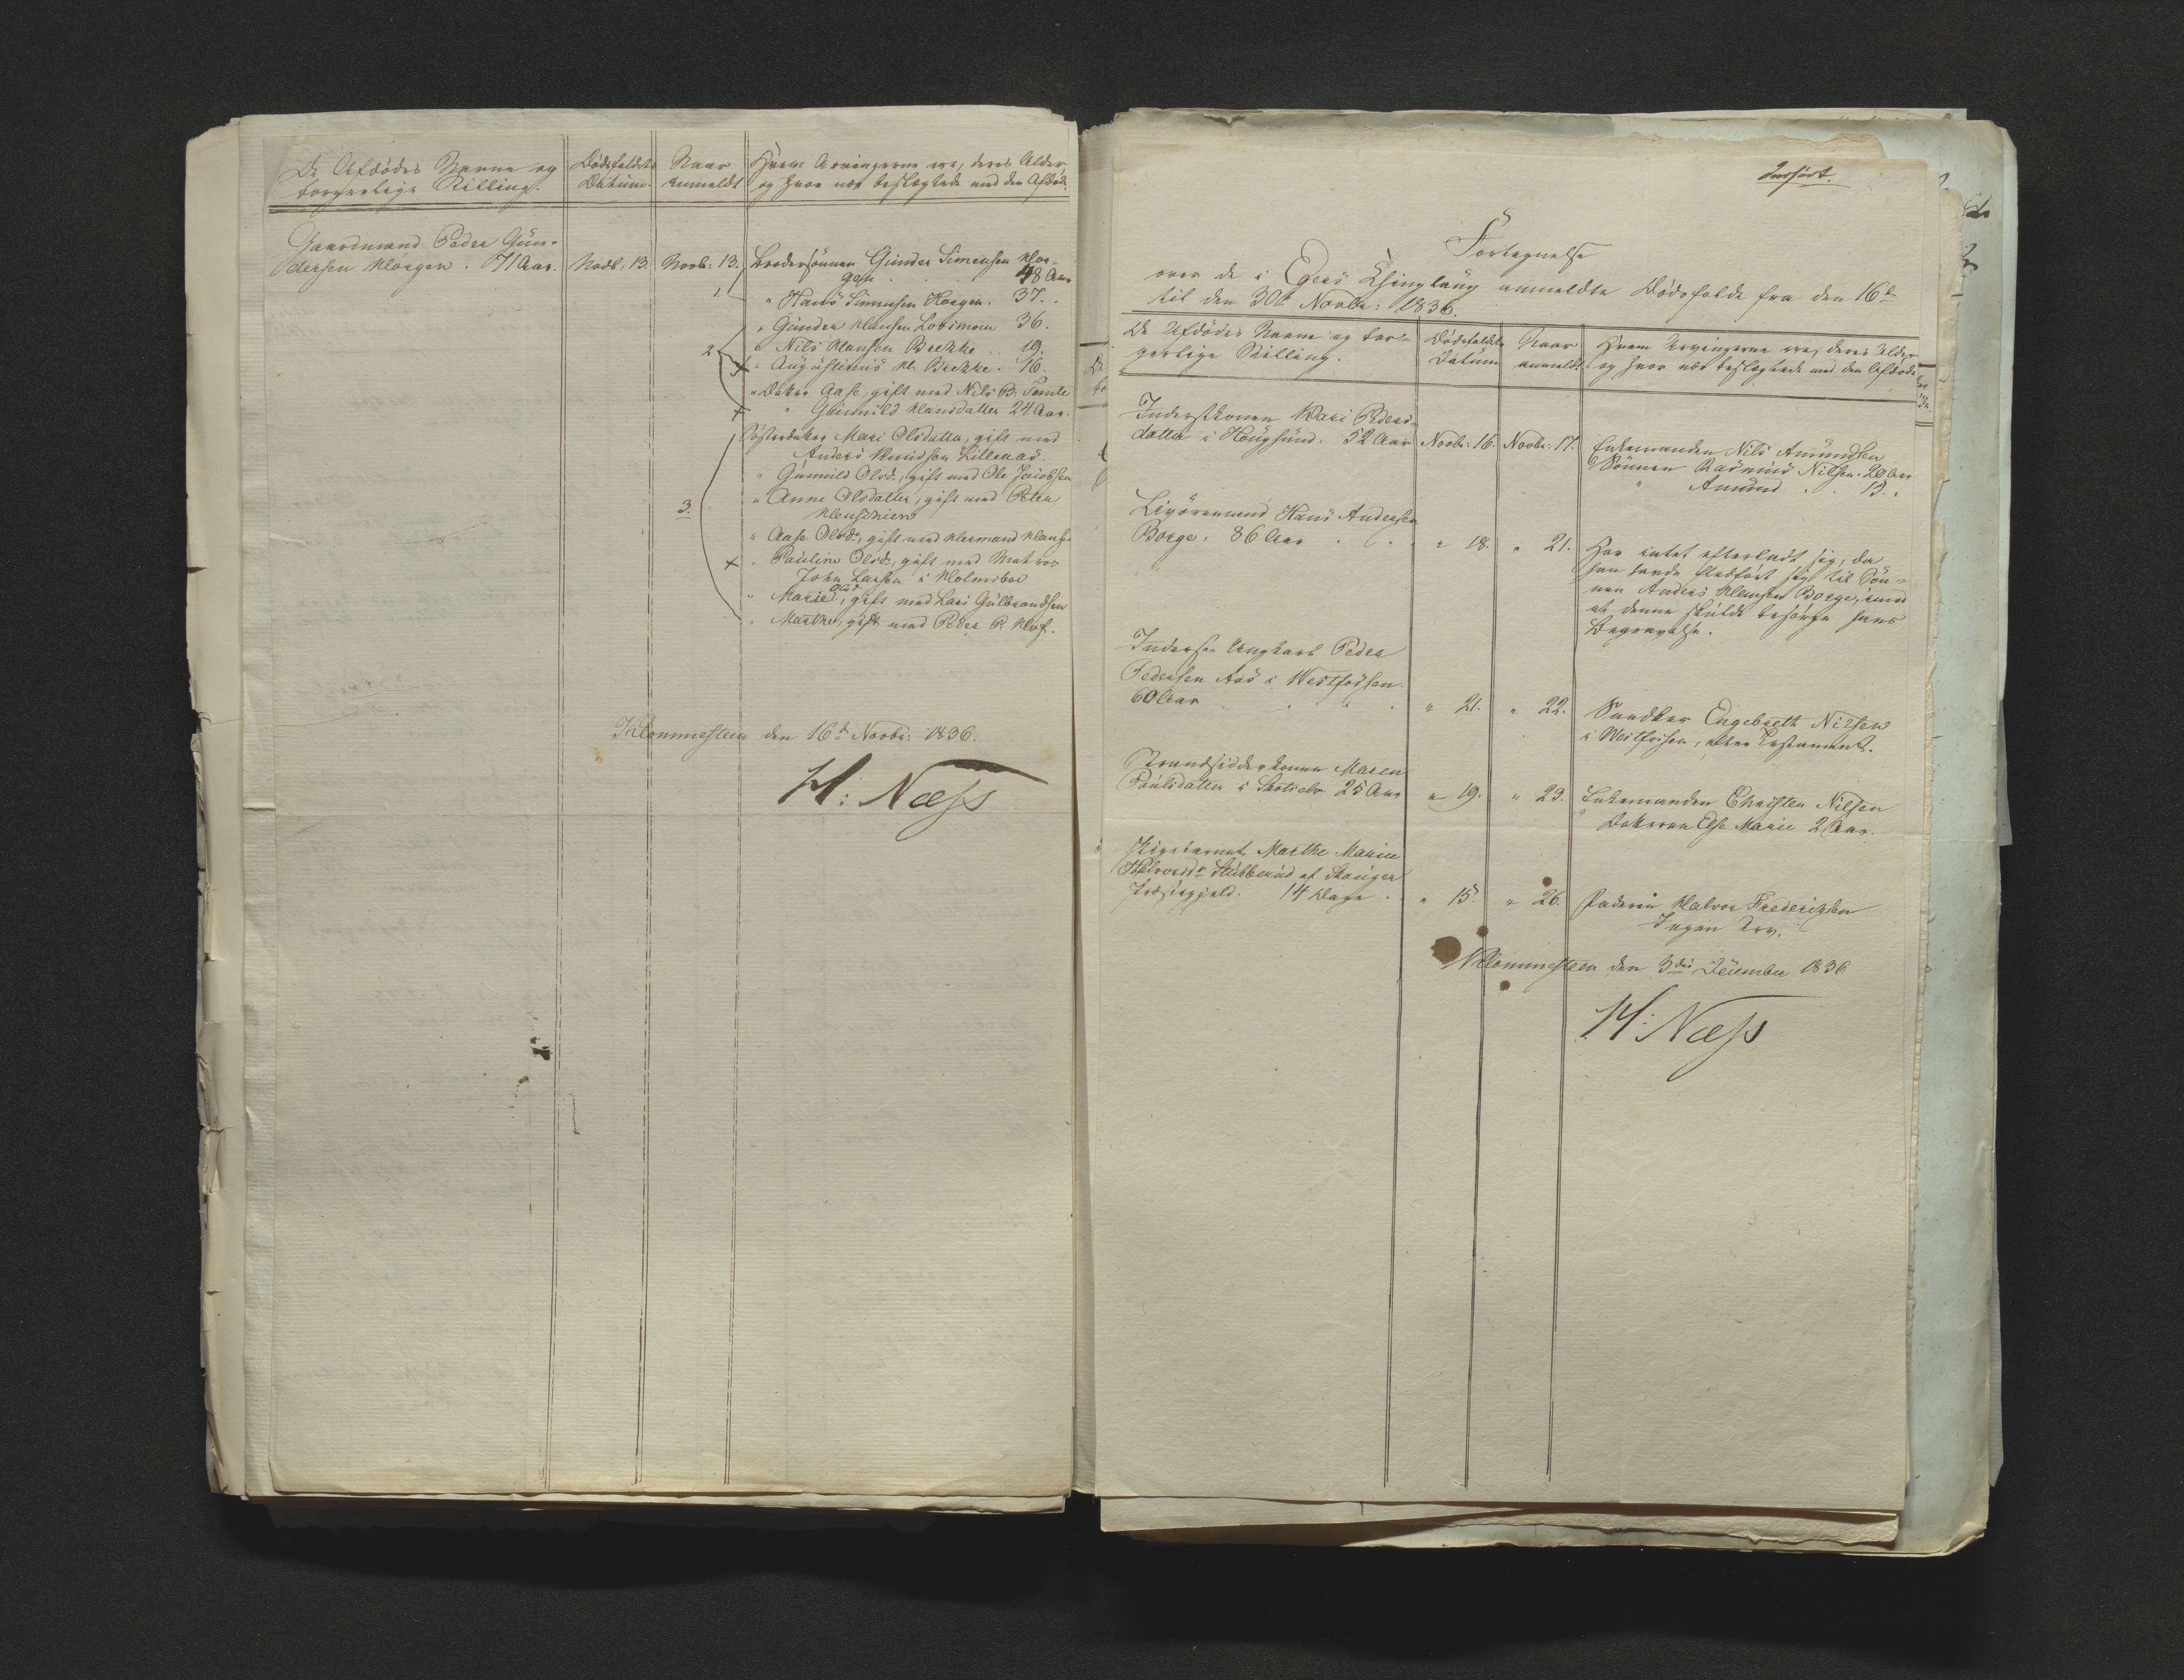 De Afdødes Navne og
borgerlige Stilling.
Dødsfaldets
Datum.
Naar
anmeldt
Hvem Arvingerne ere, deres Alder
og hvor nær beslægtede med den Afdøde.
Gaardmand Peder Gun-
dersen Horgen. 71 Aar.
Novb: 13.
Novb: 13.
Brodersønnen Gunder Simensen Hor-
gen 48 Aar
1. " Hans Simensen Horgen. 37. "
" Gunder Hansen Lobsmoen 36.
2. " Nils Hansen Brekke .. 19.
x " Augustinus H. Brekke. 16.
" Datter Aase, gift med Nils B. Temte
x " Gunnild Hansdatter 24 Aar.
Søsterdatter Mari Olsdatter, gift med
Anders Knudsen Lilleaas.
" Gunnild Olsd., gift med Ole Jacobsen
" Anne Olsdatter, gift med Peter
3.
" Aase Olsdr, gift med Herman Hansen
x " Pauline Olsdr, gift med Matros
John Larsen i Holmsboe
" Marie Olsd, gift med Lars Gulbrandsen
" Marthe, gift med Peder P. Hof.
Klommesteen den 16d Novbr: 1836.
H: Næss
Indført.
Fortegnelse
over de i Egers Thinglaug anmeldte Dødsfalde fra den 16d
til den 30t Novbr: 1836.
De Afdødes Navne og bor-
gerlige Stilling.
Dødsfaldets
Datum
Naar
anmeldt
Hvem Arvingerne ere, deres Alder
og hvor nær beslægtede med den Afdøde
Inderstkonen Kari Peders-
datter i Hougsund. 52 Aar
Novbr: 16.
Novbr: 17.
Enkemanden Nils Amundsen
Sønnen Rasmus Nilsen. 20 Aar
" Amund . . 13. "
Livøremand Hans Andersen
Borge. 86 Aar . .
" 18.
" 21.
Har intet efterladt sig, da
han havde fledført sig til Søn-
nen Anders Hansen Borge, imod
at denne skulde besørge hans
Begravelse.
Inderst Ungkarl Peder
Pedersen Aas i Westfossen.
60 Aar . . .
" 21.
" 22.
Engebreth Nilsen
i Westfossen, efter Testament.
Strandsidderkonen Maren
Poulsdatter i Skotselv. 25 Aar
" 19.
" 23.
Enkemanden Christen Nilsen
Datteren Else Marie 2 Aar.
Pigebarnet Marthe Marie
Halvorsdr Stubberud af Stanger
Præstegjeld. 14 Dage .
" 15.
" 26.
Faderen Halvor Frederiksen
Ingen Arv.
Klommesteen den 3die December 1836
H: Næss